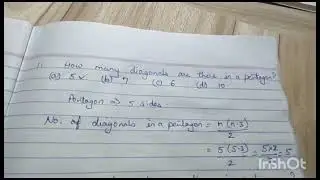 1. How many diagonals are there in a pentagon?
(a) 5 (b) 7 (c) 6 (d) 10
Pentagon ⇒ 5 sides.
No. of diagonals in a pentagon = n(n-3)/2
= 5(5-3)/2 = 5×2/2 = 5
InShOt